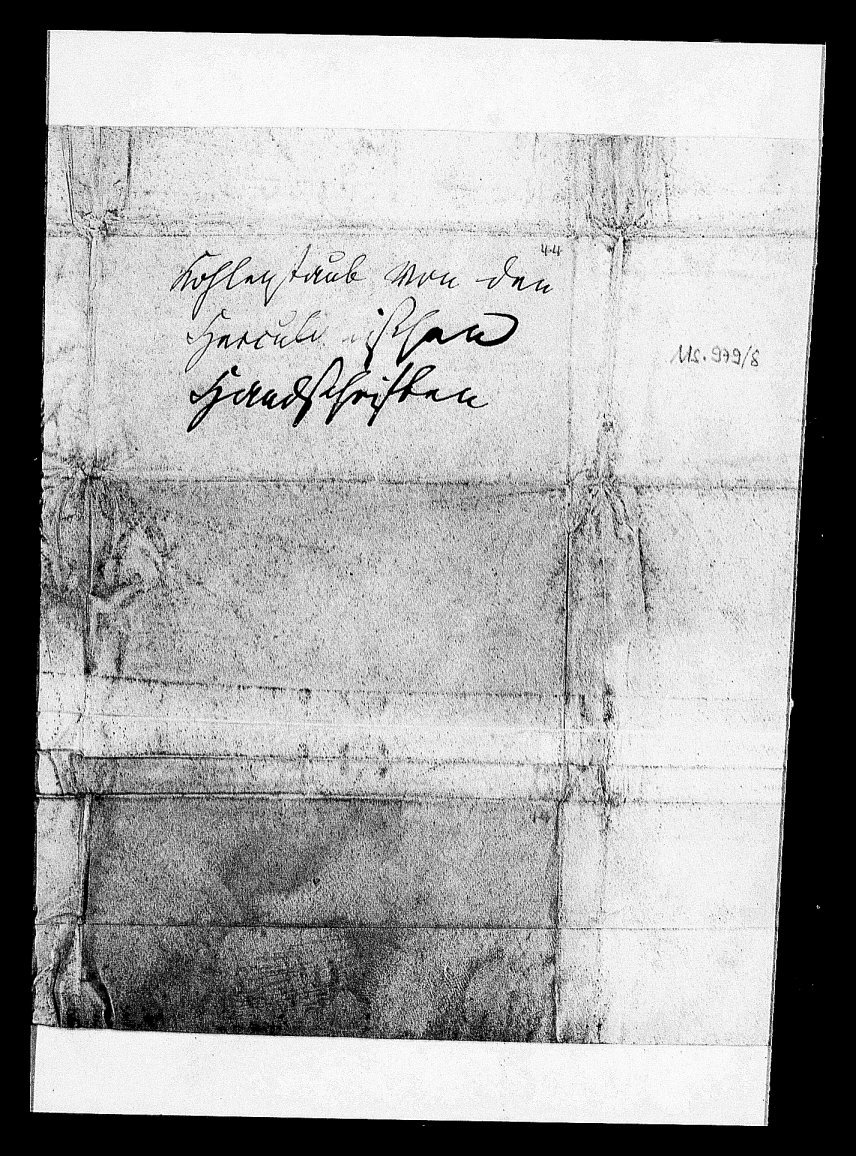 44
Kohlenstaub von den
Herculanischen
Handschriften
Ms. 979/8